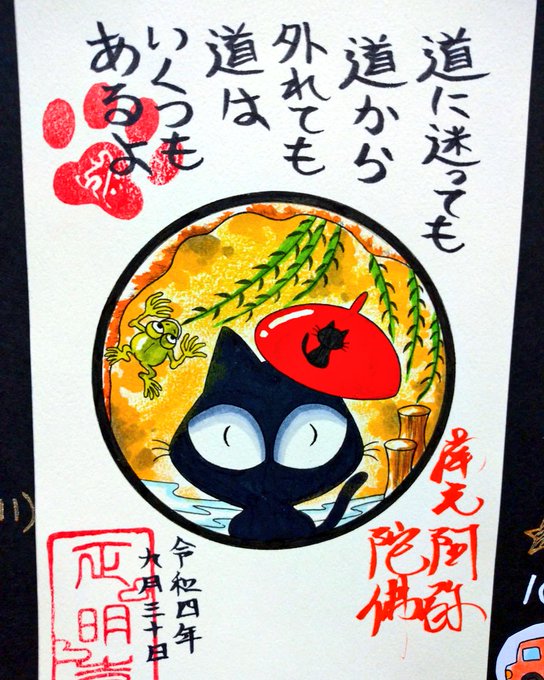 道に迷っても
道から
外れても
道は
いくつも
あるよ
南无阿弥
陀佛
令和四年
九月三十日